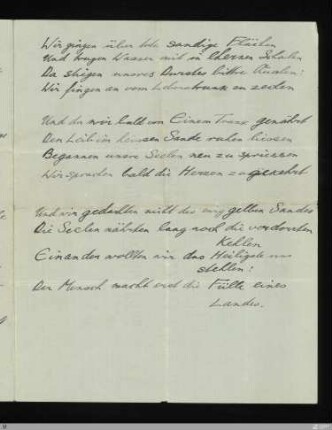 Wir gingen über tote sandige Flächen
Und trugen Wasser mit in ehernen Schalen
Da stiegen unseres Durstes bittre Qualen:
Wir fingen an vom zu

Und da wir bald von Einem Trunk genährt
Den Leib im Sande ruhen liessen
Begannen unsre Seelen neu zu spriessen
Wir sprachen bald die Herzen zugekehrt

Und wir gedachten nicht des gelben Sandes
Die Seelen nährten lang noch die verdorrten
Kehlen
Einander wollten wir das Heiligste uns
stehlen:
Der Mensch macht erst die Fülle eines
Landes.